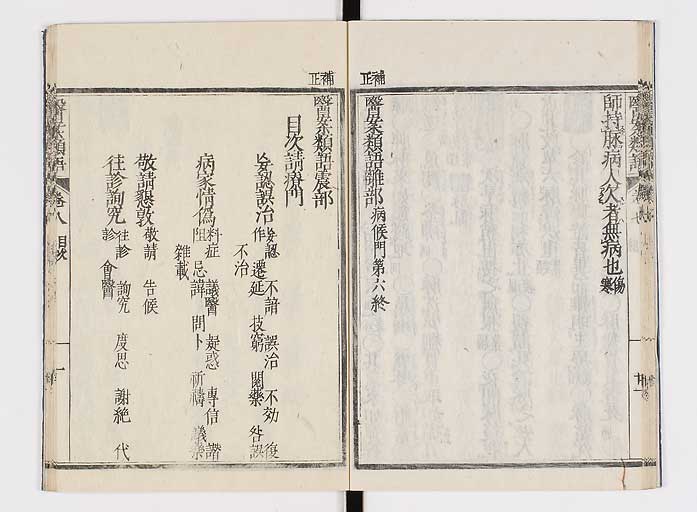 師持脉病人欠者無病也 傷寒
醫案類語雝部 病候門第六終
補正
醫案類語震部
目次請療門
妄認誤治 妄認 不諳 誤治 不効 復
作 遷延 技窮 闕藥 咎誤
不治
病家情偽 料症 議醫 疑惑 專信 譖
阻 忌諱 問卜 祈禱 議藥
雜載
敬請懇敦 敬請 告候
往診詢究 往診 詢究 度思 謝絶 代
診 會醫
補正
醫案類語 卷八 目次 一